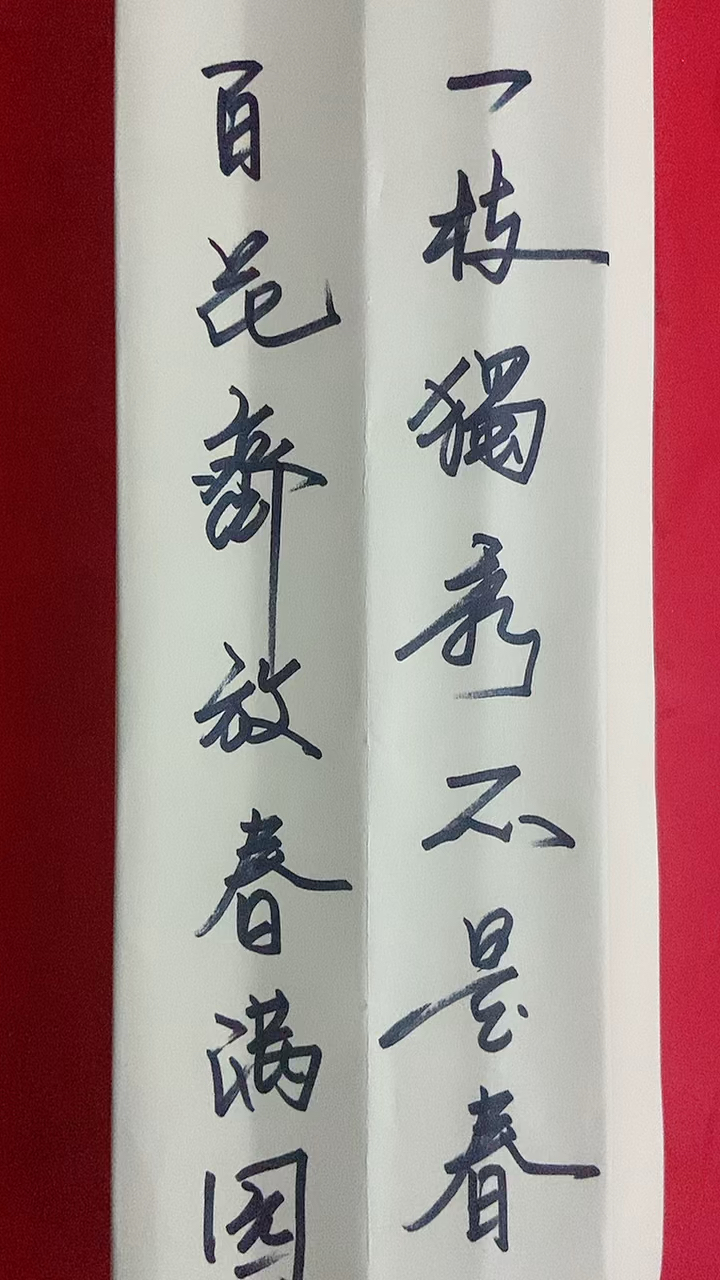 一枝獨秀不是春
百花齊放春满园